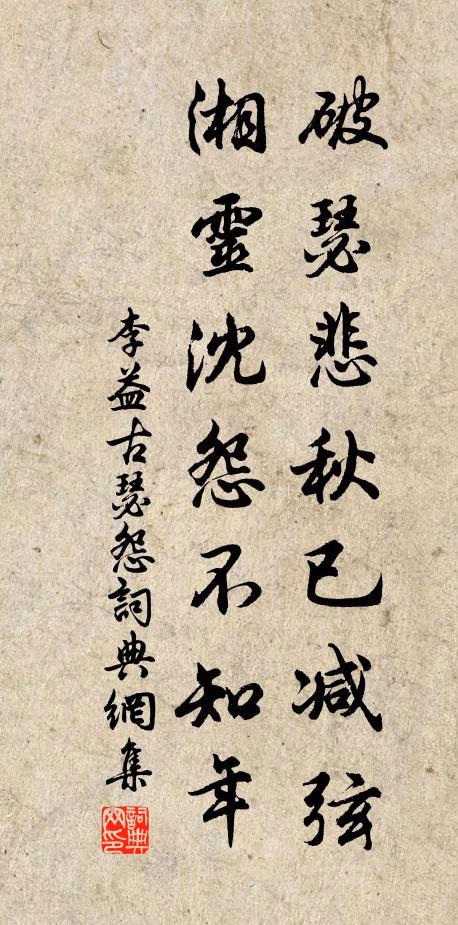 破瑟悲秋已减弦
湘靈沈怨不知年
李益古瑟怨詞典網集
詞典
网印